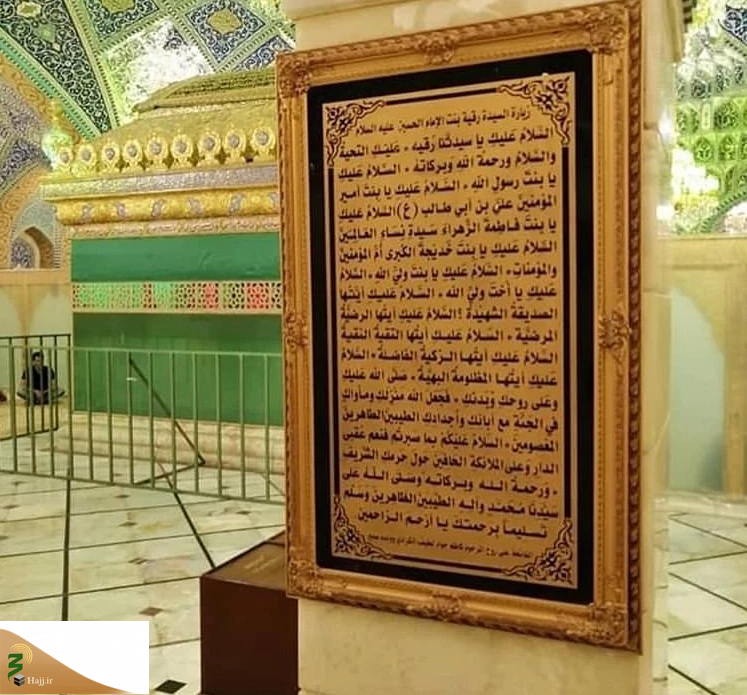 زيارة السيدة رقية بنت الإمام الحسين عليه السلام
السَّلامُ عَلَيكِ يا سيدتُنا رُقيه - عَلَيكِ التحية
والسَّلامُ ورحمة الله وبركاته - السَّلامُ عَليكِ
يا بنتَ رسولِ اللهِ - السَّلامُ عَليكِ يا بنتَ أمير
المؤمنينَ عليّ بن أبي طالب (ع) السَّلامُ عَليكِ
يا بنتَ فاطِمةَ الزَّهراءَ سَيدةِ نِساءِ العَالمِينَ
السَّلامُ عَليكِ يا بنتَ خَديجةَ الكُبرى أُمِّ المؤمنينَ
والمؤمناتِ - السَّلامُ عَليكِ يا بنتَ وليِّ الله - السَّلامُ
عَليكِ يا أختَ وليِّ الله - السَّلامُ عَليكِ أيَّتُها
الصديقةُ الشهيدَة ؛ السَّلامُ عَليكِ أيتُها الرضيَّة
المرضيَّة - السَّلامُ عَليكِ أيتُها التقيةُ النقية
السَّلامُ عَليكِ أيتُها الزكيةُ الفاضلة - السَّلامُ
عَليكِ أيتُها المظلومةُ البهيَّة - صَلّى الله عَليكِ
وعَلى روحكِ وَبَدنكِ - فَجَعَلَ الله منزلَكِ ومأواكِ
في الجنَّةِ مع آبائكِ وأجدادكِ الطيبينَ الطاهرينَ
المعصومينَ - السَّلامُ عَلَيْكُمْ بما صبرتُم فنعمَ عُقبى
الدارِ وَعلى الملائكةِ الحافينَ حولَ حرمكِ الشَّريف
- وَرحمةُ اللـه وبركاته وصَلّى اللَّهُ على
سَيِّدنا مُحَمَّدٍ وآله الطيبينَ الطاهرينَ وَسَلَّم
تَسليماً برحمتكَ يا أرْحمَ الرَّاحمين
الفاتحة على روح المرحوم كاظم جواد
Hajj.ir